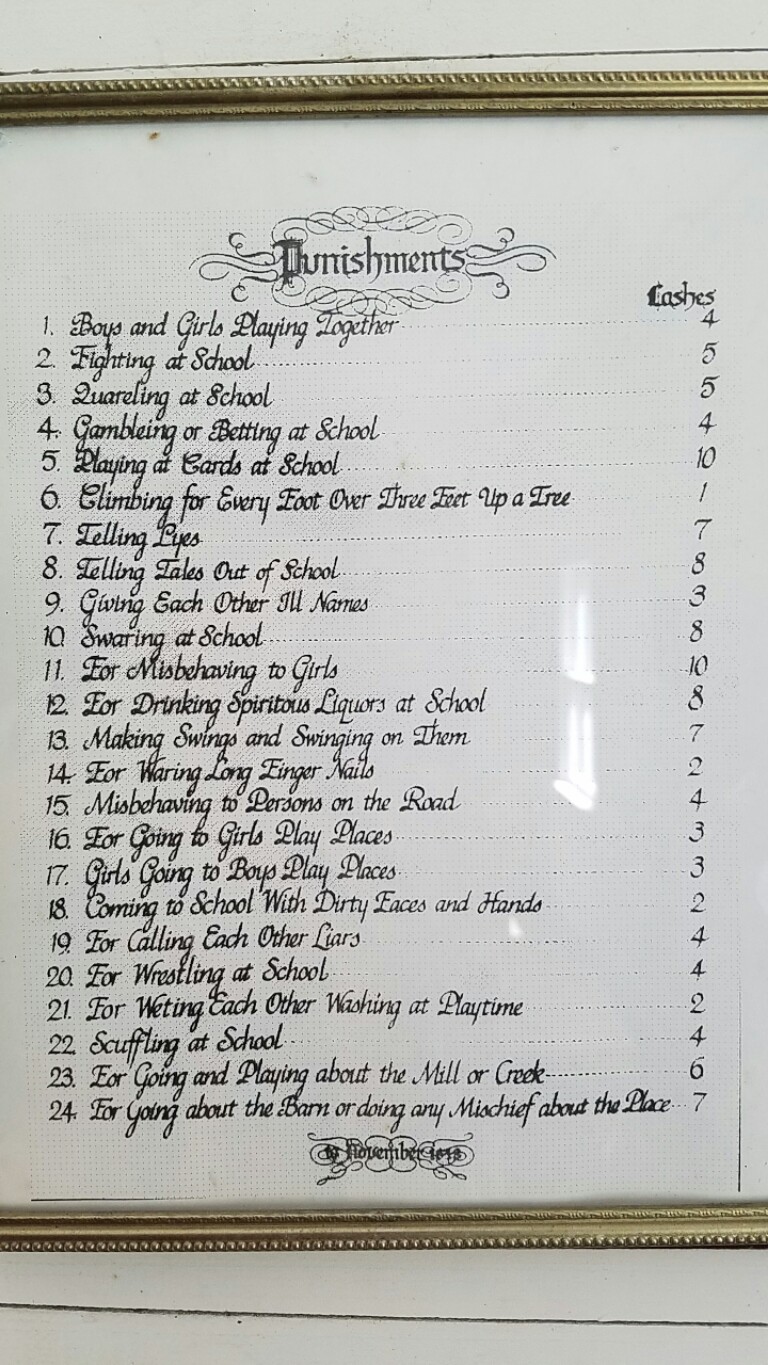 Punishments
Lashes
1. Boys and Girls Playing Together 4
2. Fighting at School 5
3. Quareling at School 5
4. Gambleing or Betting at School 4
5. Playing at Cards at School 10
6. Climbing for Every Foot Over Three Feet Up a Tree 1
7. Telling Lyes 7
8. Telling Tales Out of School 8
9. Giving Each Other Ill Names 3
10. Swaring at School 8
11. For Misbehaving to Girls 10
12. For Drinking Spiritous Liquors at School 8
13. Making Swings and Swinging on Them 7
14. For Waring Long Finger Nails 2
15. Misbehaving to Persons on the Road 4
16. For Going to Girls Play Places 3
17. Girls Going to Boys Play Places 3
18. Coming to School With Dirty Faces and Hands 2
19. For Calling Each Other Liars 4
20. For Wrestling at School 4
21. For Weting Each Other Washing at Playtime 2
22. Scuffling at School 4
23. For Going and Playing about the Mill or Creek 6
24. For Going about the Barn or doing any Mischief about the Place 7
November